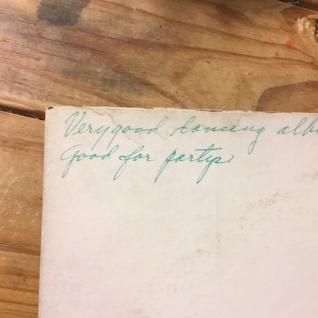 Verygood dancing alb
Good for partys